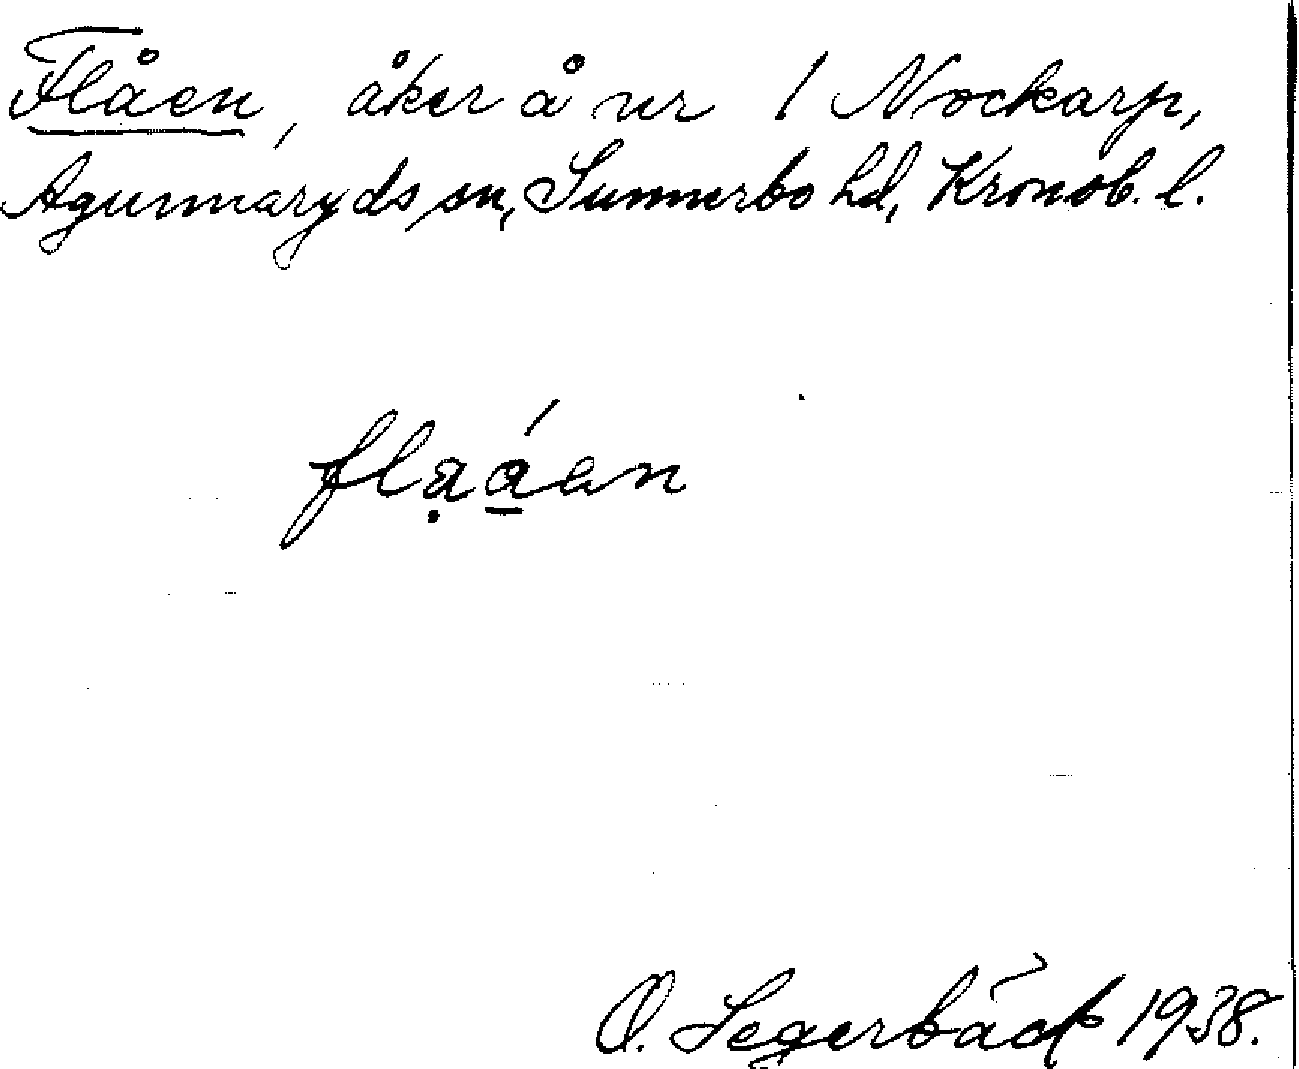 Flåen, åker å nr 1 Nockarp,
Agunnaryds sn, Sunnerbo hd, Kronob. l.
flạá̲en
O. Segerbäck 1938.